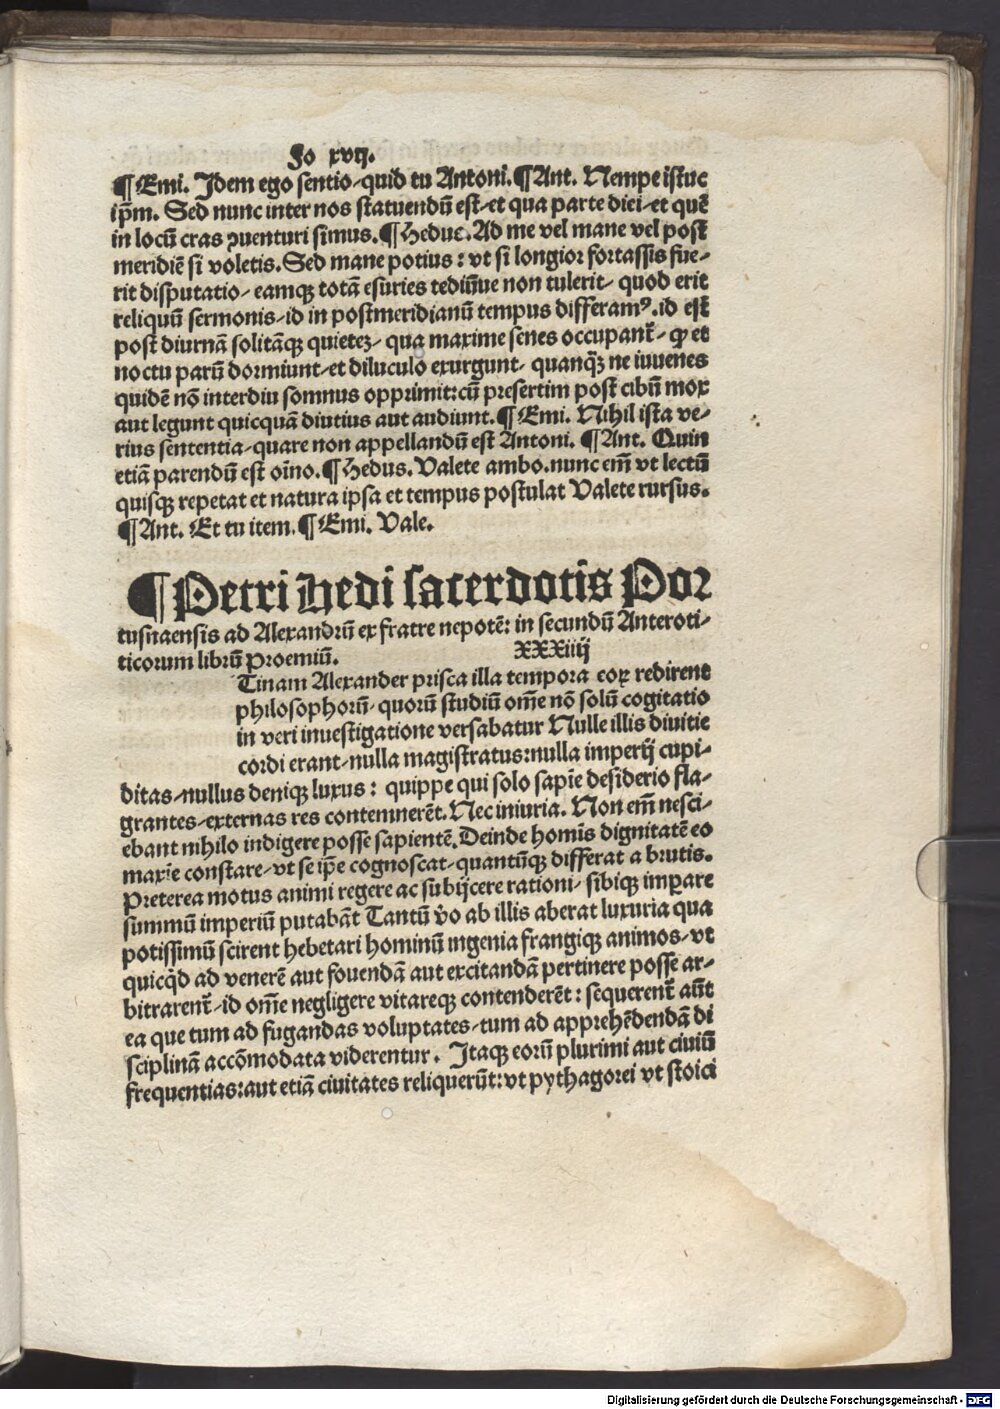 Fo xvij.
¶ Emi. Idem ego sentio⸗quid tu Antoni.¶ Ant. Nempe istuc
ip̄m. Sed nunc inter nos statuendū est⸗et qua parte diei⸗et quē
in locū cras ꝯuenturi simus.¶ Heduc. Ad me vel mane vel post
meridiē si voletis. Sed mane potius: vt si longior fortassis fue⸗
rit disputatio⸗ eamqꝫ totā esuries tediūue non tulerit⸗ quod erit
reliquū sermonis⸗id in postmeridianū tempus differamꝰ.id est
post diurnā solitāqꝫ quietez⸗ qua maxime senes occupant̄⸗ ꝙ et
noctu parū dormiunt⸗et diluculo exurgunt⸗ quanqꝫ̄ ne iuuenes
quidē nō interdiu somnus opprimit:cū presertim post cibū mox
aut legunt quicquā diutius aut audiunt.¶ Emi. Nihil ista ve⸗
rius sententia⸗quare non appellandū est Antoni. ¶ Ant. Quin
etiā parendū est oīno.¶ Hedus. Valete ambo.nunc em̄ vt lectū
quisqꝫ repetat et natura ipsa et tempus postulat Valete rursus.
¶ Ant. Et tu item.¶ Emi. Vale.
¶ Petri Hedi sacerdotis Por
tusnaensis ad Alexandrū ex fratre nepotē: in secundū Anteroti⸗
ticorum librū Proemiū. XXXiiij
Tinam Alexander prisca illa tempora eoꝝ redirent
philosophorū⸗ quorū studiū om̄e nō solū cogitatio
in veri inuestigatione versabatur Nulle illis diuitie
cordi erant⸗nulla magistratus:nulla imperij cupi⸗
ditas⸗nullus deniqꝫ luxus: quippe qui solo sapīe desiderio fla⸗
grantes⸗externas res contemnerēt. Nec iniuria. Non em̄ nesci⸗
ebant nihilo indigere posse sapientē. Deinde homīs dignitatē eo
maxīe constare⸗vt se ip̄e cognoscat⸗quantūqꝫ differat a brutis.
Preterea motus animi regere ac subijcere rationi⸗ sibiqꝫ imꝑare
summū imperiū putabāt Tantū v̄o ab illis aberat luxuria qua
potissimū scirent hebetari hominū ingenia frangiqꝫ animos⸗vt
quicq̇d ad venerē aut fouendā aut excitandā pertinere posse ar⸗
bitrarent̄⸗id om̄e negligere vitareqꝫ contenderēt: sequerent̄ aūt
ea que tum ad fugandas voluptates⸗tum ad apprehēdendā di
sciplinā accōmodata viderentur. Itaqꝫ eorū plurimi aut ciuiū
frequentias:aut etiā ciuitates reliquerūt:vt pythagorei vt stoici
Digitalisierung gefördert durch die Deutsche Forschungsgemeinschaft - DFG